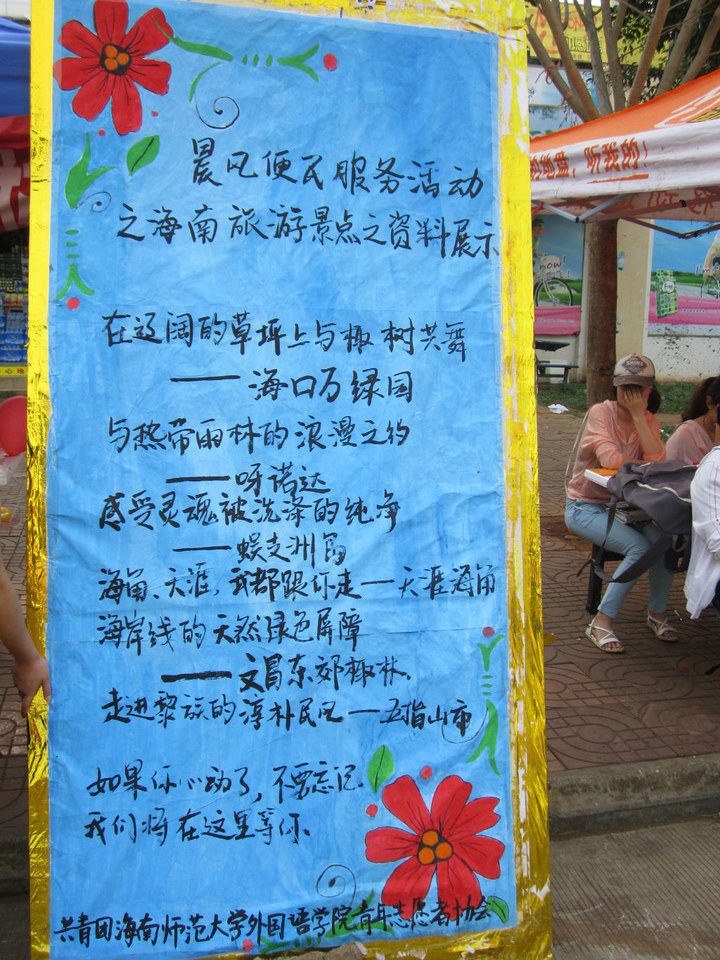 晨风便民服务活动
之海南旅游景点之资料展示
在辽阔的草坪上与椰树共舞
——海口万绿园
与热带雨林的浪漫之约
——呀诺达
感受灵魂被洗涤的纯净
——蜈支洲岛
海角、天涯，我都跟你走——天涯海角
海岸线的天然绿色屏障
——文昌东郊椰林.
走进黎族的淳朴民风——五指山市
如果你心动了，不要忘记
我们将在这里等你.
共青团海南师范大学外国语学院青年志愿者协会
地盘，听我的！
now!